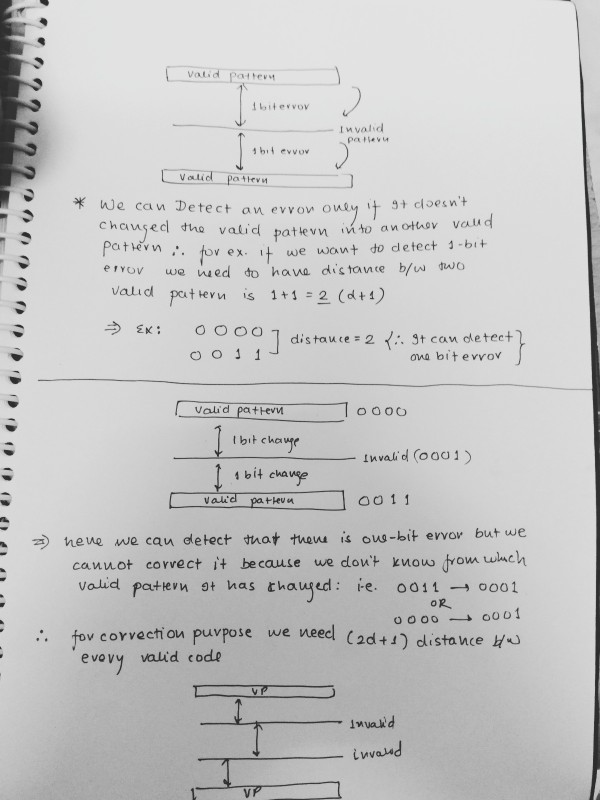 Valid pattern
1 bit error
Invalid
pattern
1 bit error
Valid pattern
* We can Detect an error only if It doesn't
changed the valid pattern into another valid
pattern ∴ for ex. if we want to detect 1-bit
error we need to have distance b/w two
valid pattern is 1+1 = 2 (d+1)
⇒ Ex: 0000
0011 ] distance = 2 {∴ It can detect
one bit error}
Valid pattern 0000
1 bit change
Invalid (0001)
1 bit change
Valid pattern 0011
⇒ here we can detect that there is one-bit error but we
cannot correct it because we don't know from which
valid pattern It has changed: i.e. 0011 → 0001
OR
0000 → 0001
∴ for correction purpose we need (2d+1) distance b/w
every valid code
VP
Invalid
invalid
VP